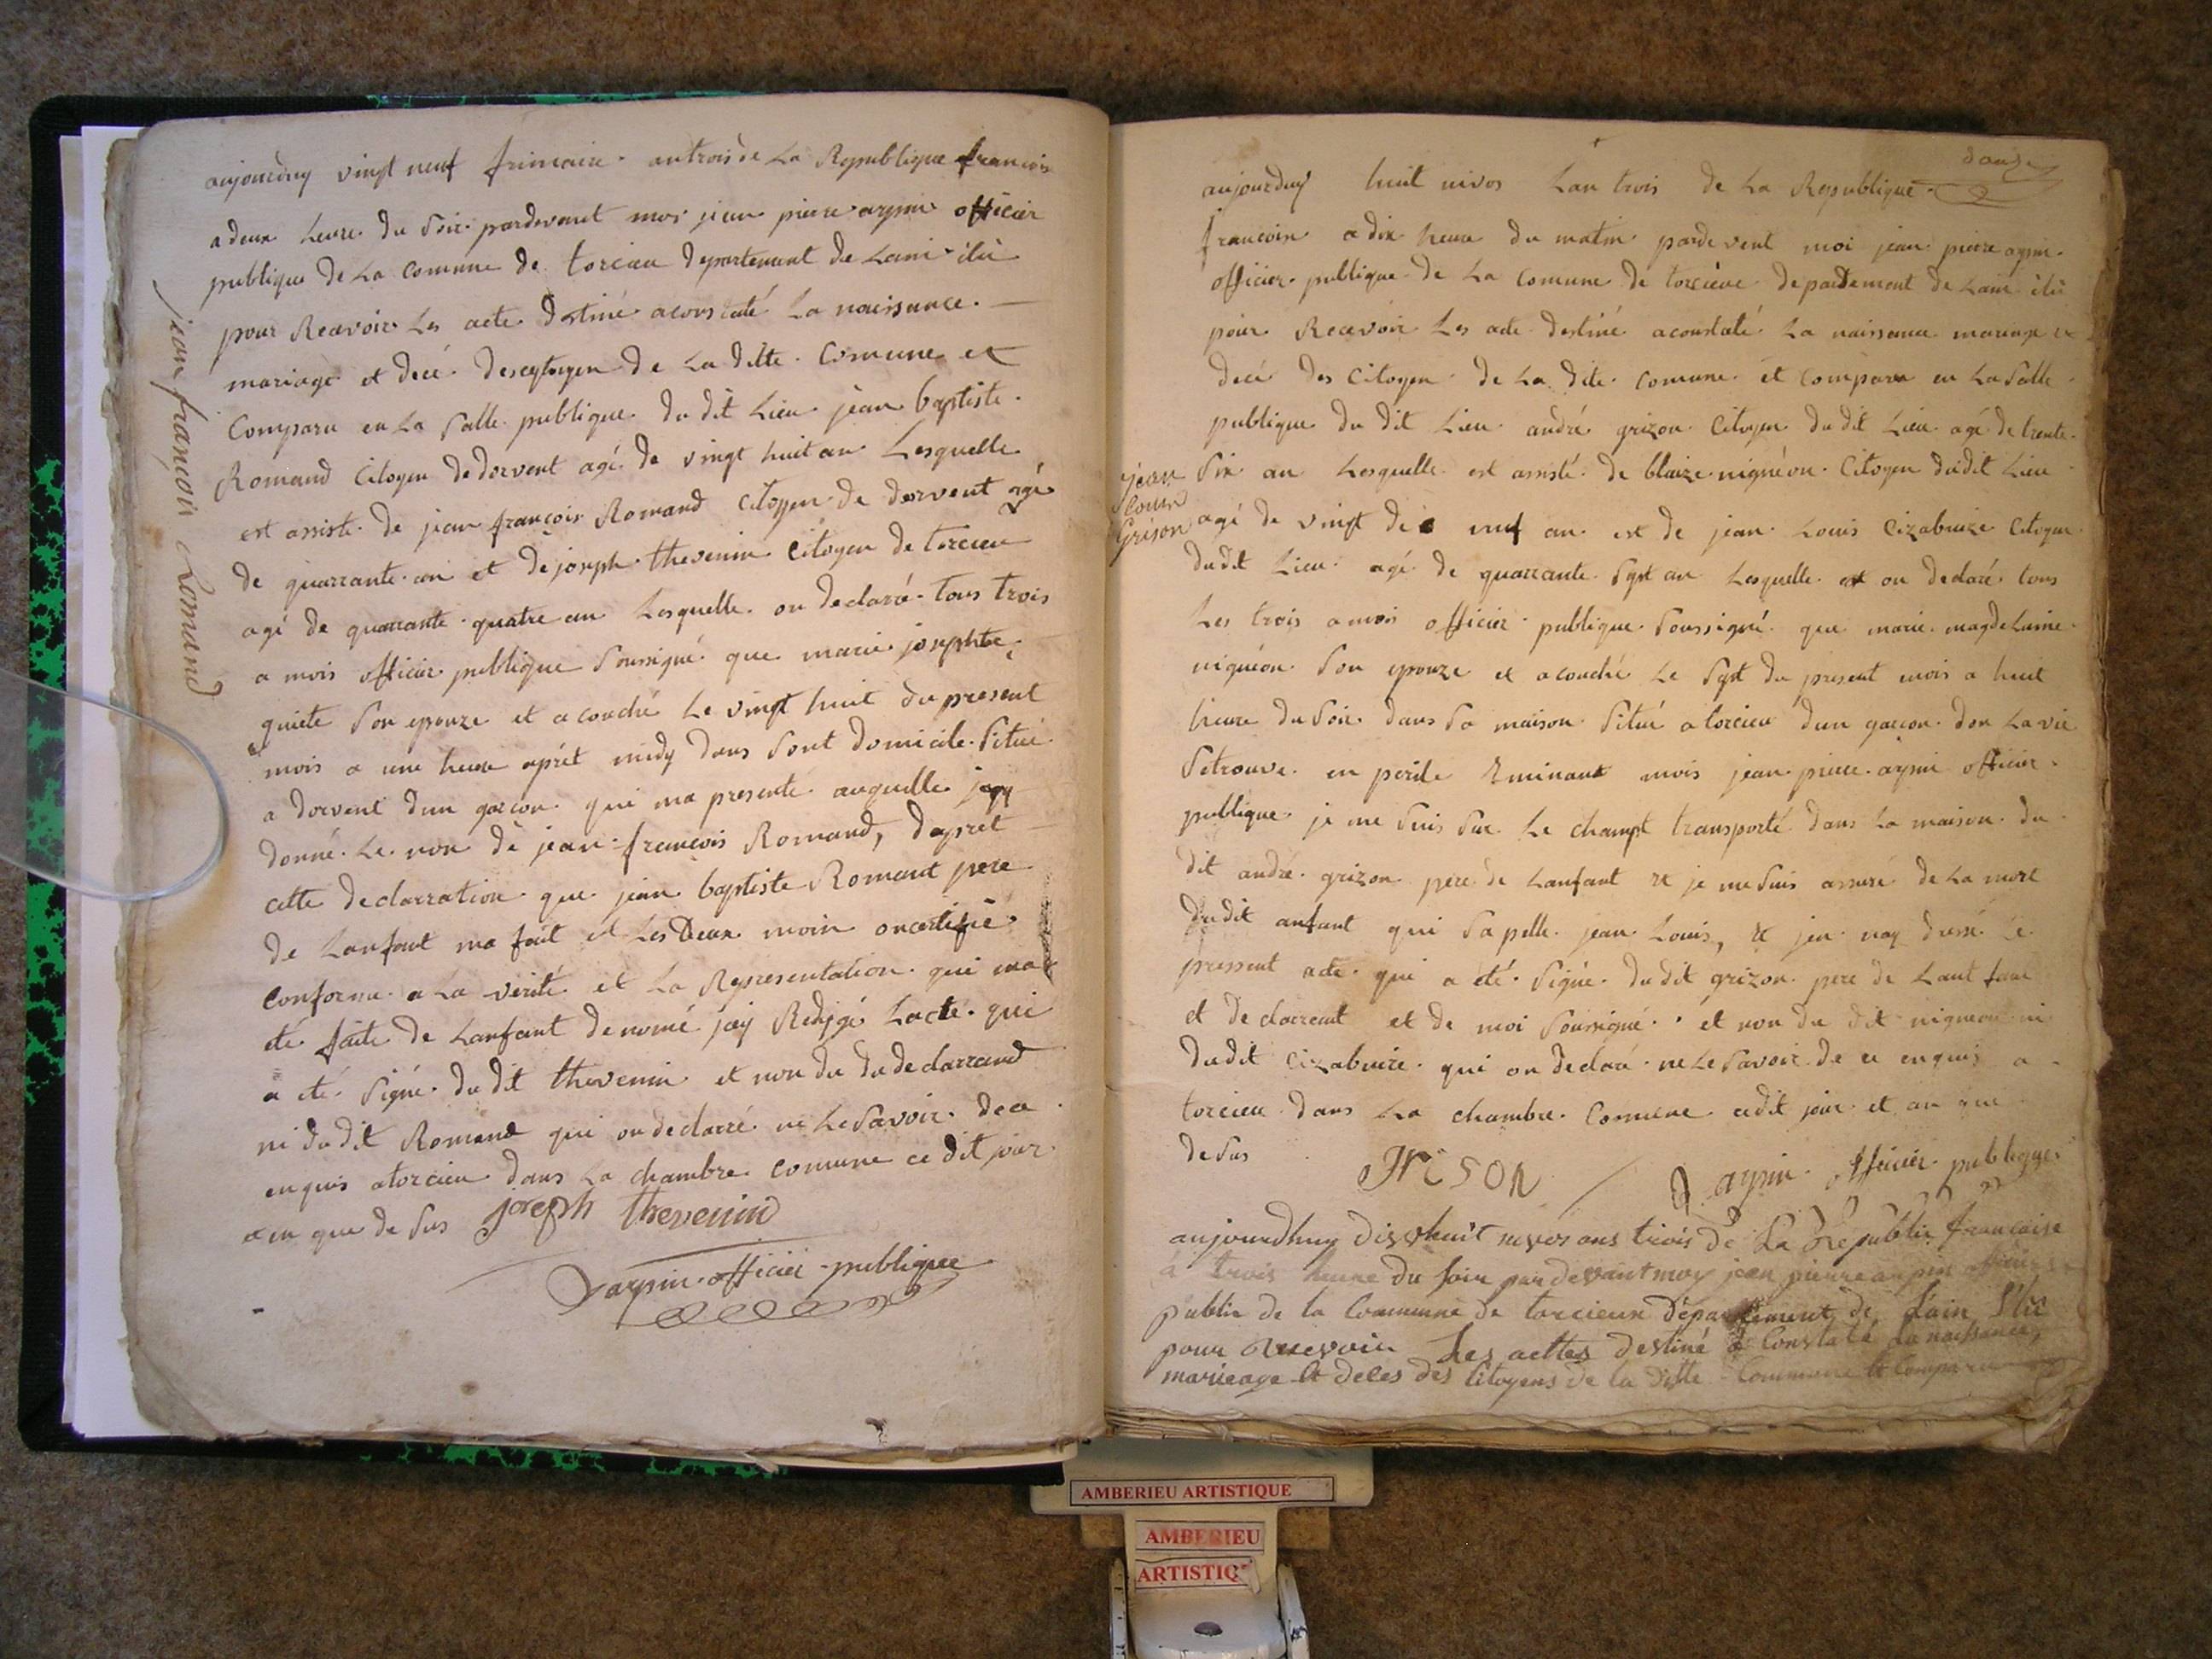 aujourduy vingt neuf frimaire antrois de La Republique francois
a deux heure du Soir pardevant moi jean pierre arpin officier
publique de La Comune de torcieu departement de Lain élu
pour Recevoir Les acte destiné aconstaté La naissance
mariage et decé des cytoyen de La ditte Comune et
Comparu en La Salle publique du dit Lieu jean baptiste
Romand Citoyen de dorvent agé de vingt huit an Lesquelle
est assisté de jean françois Romand Citoyen de dorvent agé
de quarrante an et de joseph thevenin Citoyen de torcieu
agé de quarrante quatre an Lesquelle on declaré tous trois
a mois officier publique Soussigné que marie josephte
Son epouze et acouché Le vingt huit du present
mois a une heure aprét midy dans Sont domicile Situé
a dorvent dun garcon qui ma presenté auquelle jay
donné Le non de jean francois Romand, daprét
cette declarration que jean baptiste Romant pere
de Lanfant ma fait et Les Deux moin oncertifié
Conforme a La verité et La Representation qui ma
été faite de Lanfant denomé jay Redigé Lacte qui
a été Signé du dit thevenin et non du du declarrand
ni du dit Romand qui on declarré ne Le Savoir de ce
enquis atorcieu dans La chambre Comune ce dit jour
et an que de Sus joseph thevenin
arpin officier publique
jean françois Romand
aujourduy huit nivos Lan trois de La Republique
francoise a dix heure du matin pardevent moi jean pierre arpin
officier publique de La Comune de torcieue departement de Lain élu
pour Recevoir Les acte destiné aconstaté La naissance mariage et
decé des Citoyen de La dite Comune et Comparu en La Salle
publique du dit Lieu andré grizon Citoyen du dit Lieu agé de trente
Six an Lesquelle est assisté de blaize nignéon Citoyen dudit Lieu
jean
Louis
Grison
agé de vingt dix neuf an et de jean Louis Cizabuize Citoyen
dudit Lieu agé de quarrante Sept an Lesquelle on declaré tous
Les trois a mois officier publique Soussigné que marie magdelaine
nignéon Son epouze et acouché Le Sept du present mois a huit
heure du Soir dans Sa maison Situé a torcieu dun garcon don La vie
Setrouve en perile Eminant mois jean pierre arpin officier
publique je me Suis Sur Le champt transporté dans La maison du
dit andré grizon pere de Lanfant et je me Suis assuré de La mort
dudit anfant qui Sapelle jean Louis, et jen nay dressé Le
pressent acte qui a été Signé dudit grizon pere de Lant fant
et declarrant et de moi Soussigné et non du dit nigneon ni
dudit Cizabuire qui on declaré ne Le Savoir de ce enquis a
torcieu dans La chambre Comune cedit jour et an que
de Sus
grison arpin officier publique
aujourdhuy dixhuit nivos ans trois de La Republiq francaise
à trois heure du soir pardevant moy jean pierre arpin officier
public de la Commune de torcieux département de Lain Elu
pour Recevoir Les acttes destiné à Constaté La naissance,
marieage et deces des Citoyens de la ditte Commune et Comparu
AMBERIEU ARTISTIQUE
AMBERIEU
ARTISTIQ